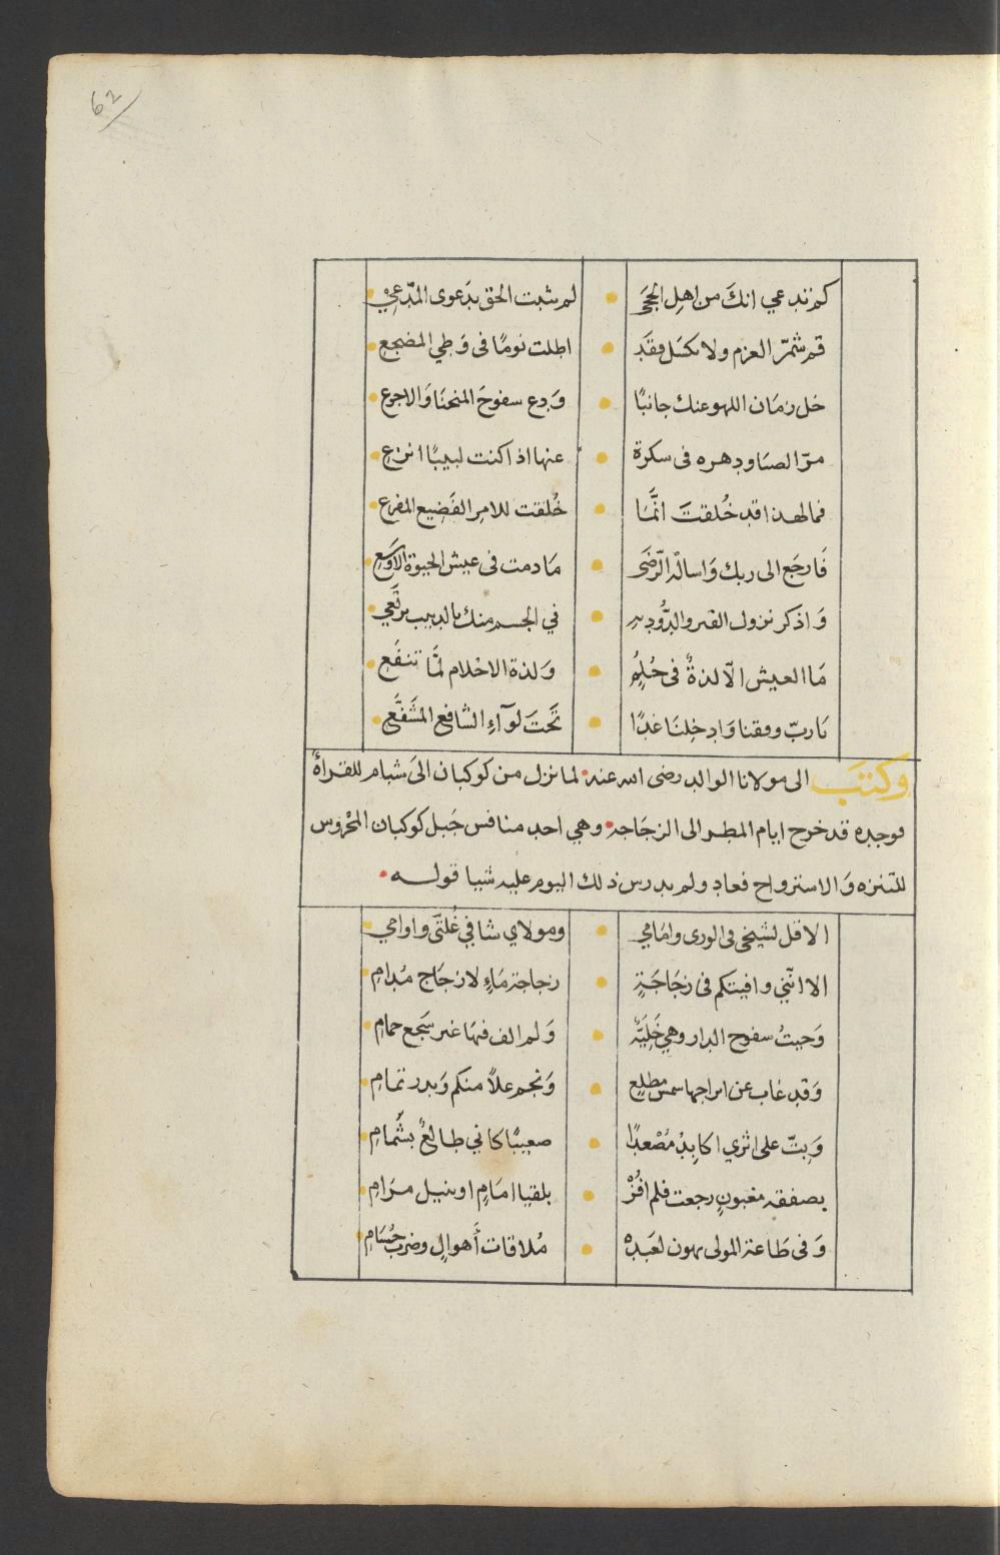 62
كم تدعي انكَ من اهِل الحجَى • لم يثبت الحق بدَعوى المدّعِيْ
قم شمّر العزم ولا تكسَل فقَد • اطلت نومًا في وَطِي المضجع
خل زمَان اللهو عنك جانبًا • وَدع سفوحَ المنحنَا وَالاجرع
مرّ الصبَا ودهره في سكرة • عنها اذا كنت لبيبًا انزع
فما لهذا قد خُلقتَ انَّمَا • خُلقت للامِر الفَضِيع المفزع
فَارجَع الى ربك وَاسالْه الرّضَى • مَادمت في عيش الحيوة الاوسَع
وَاذكر نزول القبر والدُّود به • في الجسم منك بالدبيب يرتَعي
مَا العيش الّا لذةٌ في حُلِمٍ • وَلذة الاحْلام لمَّا تنفَع
يَا ربّ وفقنا وَادخِلنَا غدًا • تَحتَ لوآءِ الشافع المشَفَّعِ
وكتبَ الى مولانا الوالد رضى الله عنه • لما نزل من كوكبان الىَ شبام للقرأةَ
فوجده قد خرج ايام المطر الى الزجَاجه • وهي احد منافس جَبل كوكبان المحْروس
للتنزه وَالاستزواح فعاد ولم يدرس ذلك اليوم عليه شيا قولـه •
الا قل لشيخى في الورى وامَامي • ومولاي شافي غُلتَى واوامي
الا انّني وافيتكم في زجَاجَةٍ • زجاجة مَاءٍ لا زجَاج مُدام
وَجبتُ سفوح الدار وهي خَلِيَّه • وَلم الف فيهَا غير سَجع حمام
وَقد غاب عن ابراجها شمس مطلعٍ • وَنجم علاً منكم وَبدر تمام
وَبتّ على اثري اكابدْ مُصْعدًا • صعيبًا كاني طالعٌ بشَمامِ
بصفقه مغبونٍ رجعت فلم افُزْ • بلقيا امَامٍ او بنيل مرَام
وَفى طَاعة المولى يهون لعَبدِه • مُلاقات أهوالٍ وضرب حُسَامِ